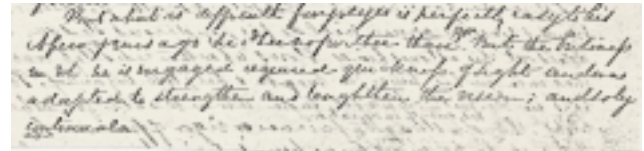 But what is difficult for is perfectly easy to his
A few years ago he than but the business
in wh he is engaged required quickness of sight and was
adapted to strengthen and lengthen the vision; and so by